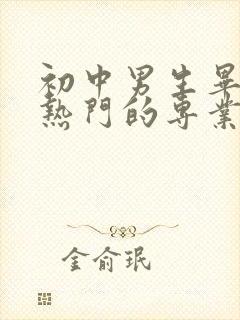 初中男生畢
熱門的專業
金俞珉